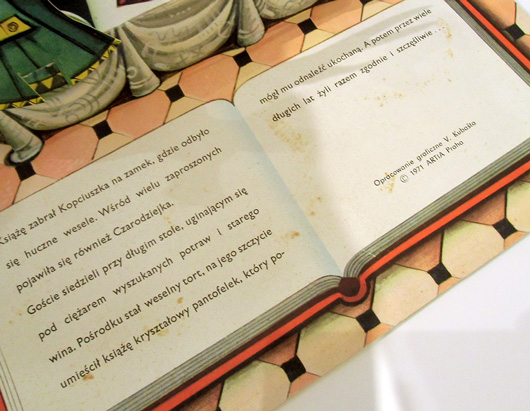 Książę zabrał Kopciuszka na zamek, gdzie odbyło
się huczne wesele. Wśród wielu zaproszonych
pojawiła się również Czarodziejka.
Goście siedzieli przy długim stole, uginającym się
pod ciężarem wyszukanych potraw i starego
wina. Pośrodku stał weselny tort, na jego szczycie
umieścił książę kryształowy pantofelek, który po-
mógł mu odnaleźć ukochaną. A potem przez wiele
długich lat żyli razem zgodnie i szczęśliwie...
Opracowanie graficzne V. Kubašta
© 1971 ARTIA Praha